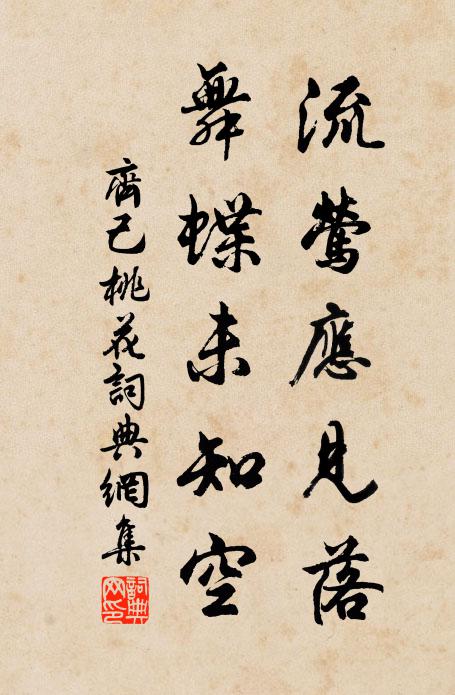 流鶯應見落
舞蝶未知空
齊己桃花詞典網集
詞典網印